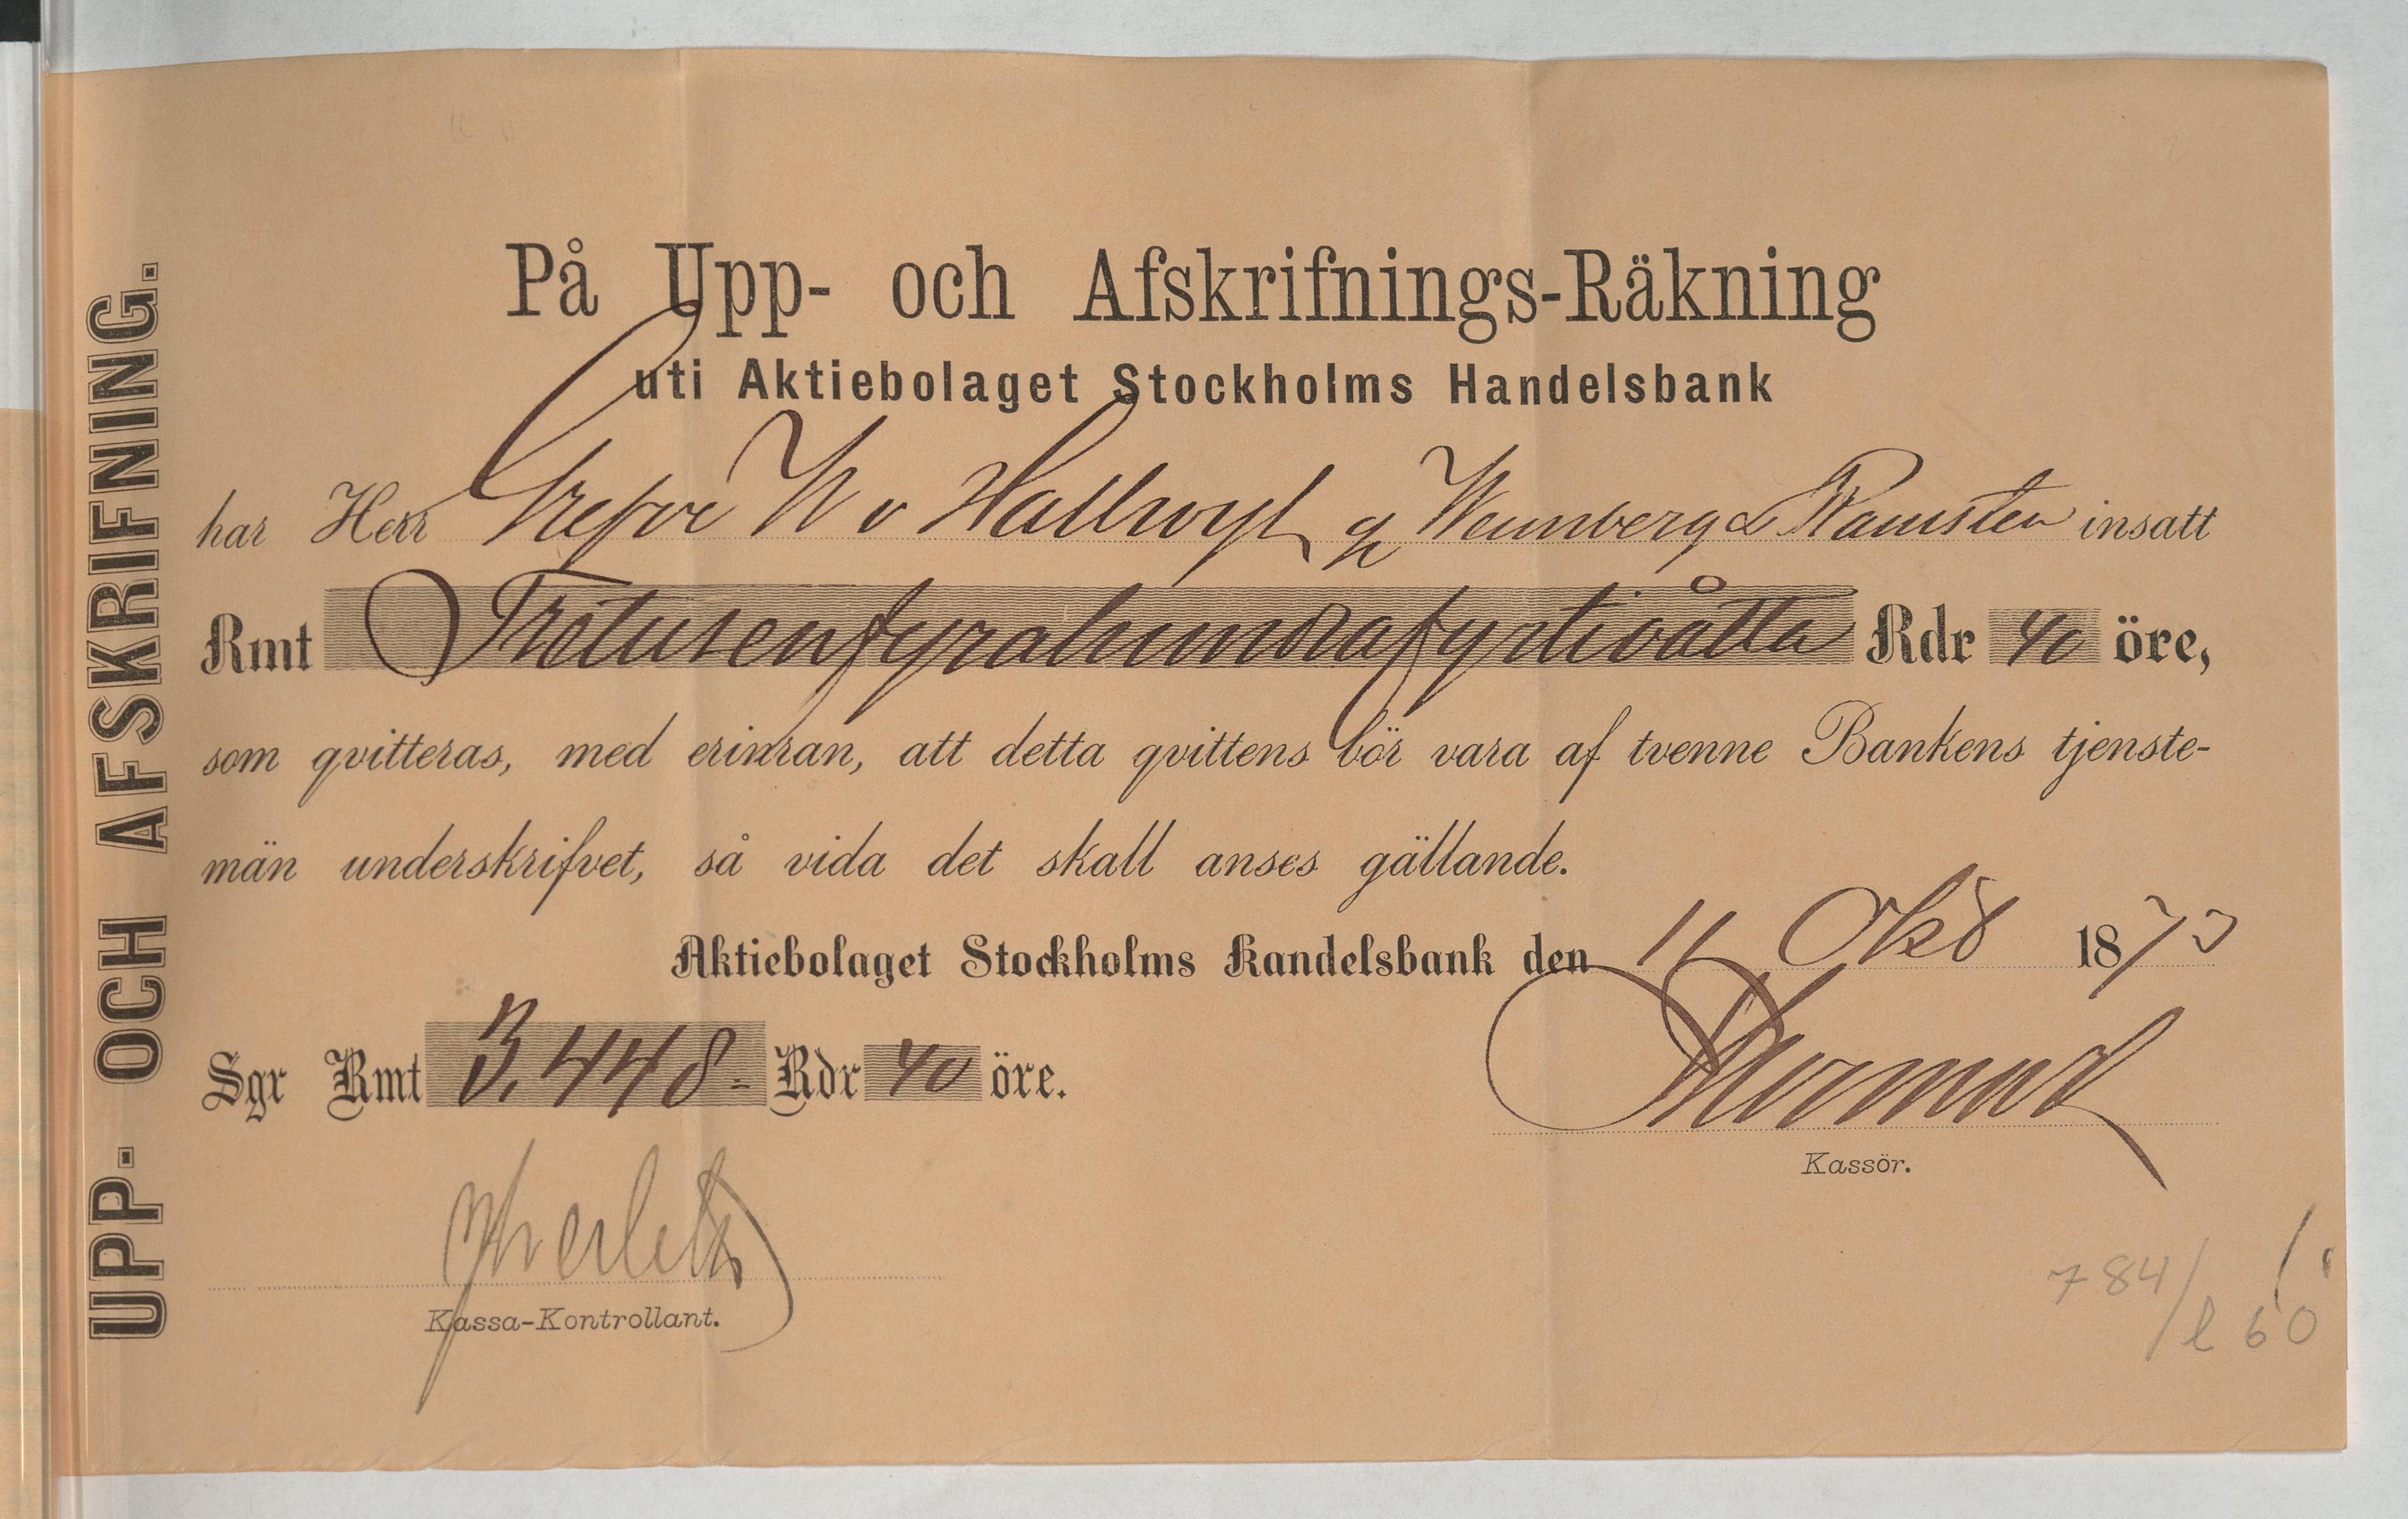 UPP- OCH AFSKRIFNING.
På Upp- och Afskrifnings-Räkning
uti Aktiebolaget Stockholms Handelsbank
har Herr Grefve W v Hallwyl gr Wennberg & Ramsten insatt
Rmt Tretusenfyrahundrafyrtioåtta Rdr 40 öre,
som qvitteras, med erinran, att detta qvittens bör vara af tvenne Bankens tjenste-
män underskrifvet, så vida det skall anses gällande.
Aktiebolaget Stockholms Handelsbank den 11 Okt 1873
Sgr Rmt 3.448- Rdr 40 öre.
Kassör.
Kassa-Kontrollant.
784/
l 60